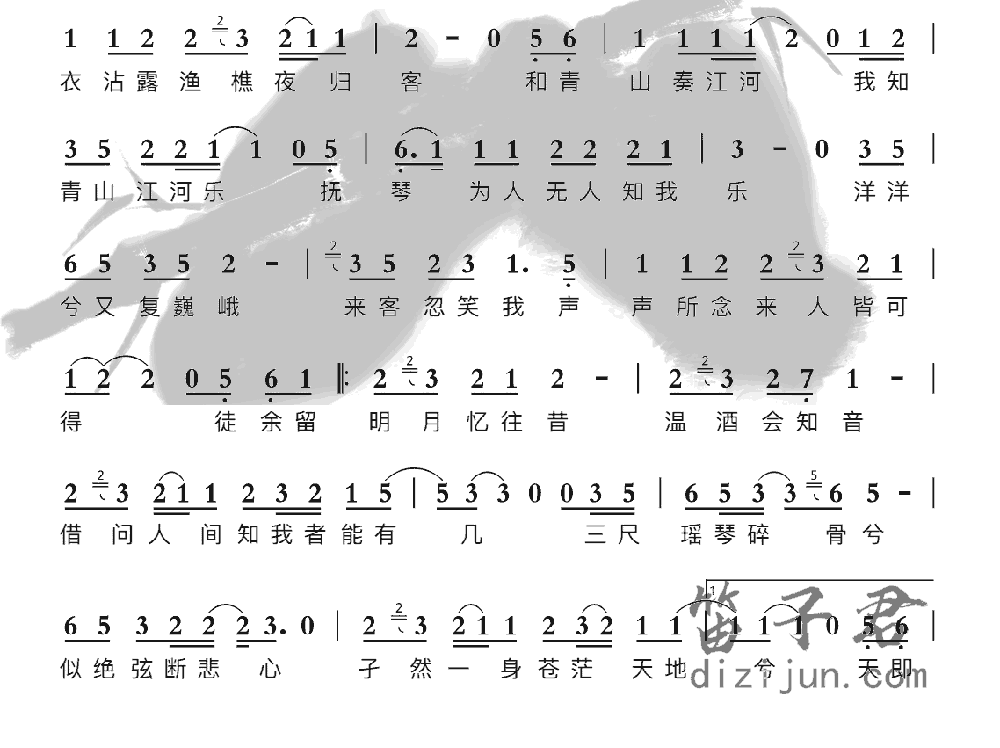 1 1 2 2 2 3 2 1 1 | 2 - 0 5 6 | 1 1 1 1 2 0 1 2 |
衣沾露渔樵夜归客 和青山奏江河 我知
3 5 2 2 1 1 0 5 | 6. 1 1 1 2 2 2 1 | 3 - 0 3 5
青山江河乐 抚琴 为人无人知我乐 洋洋
6 5 3 5 2 - | 2 3 5 2 3 1. 5 | 1 1 2 2 2 3 2 1 |
兮又复巍峨 来客忽笑我声声所念来人皆可
1 2 2 0 5 6 1 ‖: 2 2 3 2 1 2 - | 2 2 3 2 7 1 - |
得 徒余留 明月忆往昔 温酒会知音
2 2 3 2 1 1 2 3 2 1 5 | 5 3 3 0 0 3 5 | 6 5 3 3 5 6 5 - |
借问人间知我者能有 几 三尺瑶琴碎骨兮
6 5 3 2 2 2 3. 0 | 2 2 3 2 1 1 2 3 2 1 1 | 1. 1 1 1 0 5 6 |
似绝弦断悲心 孑然一身苍茫天地 兮 天即
笛子君
dizijun.com